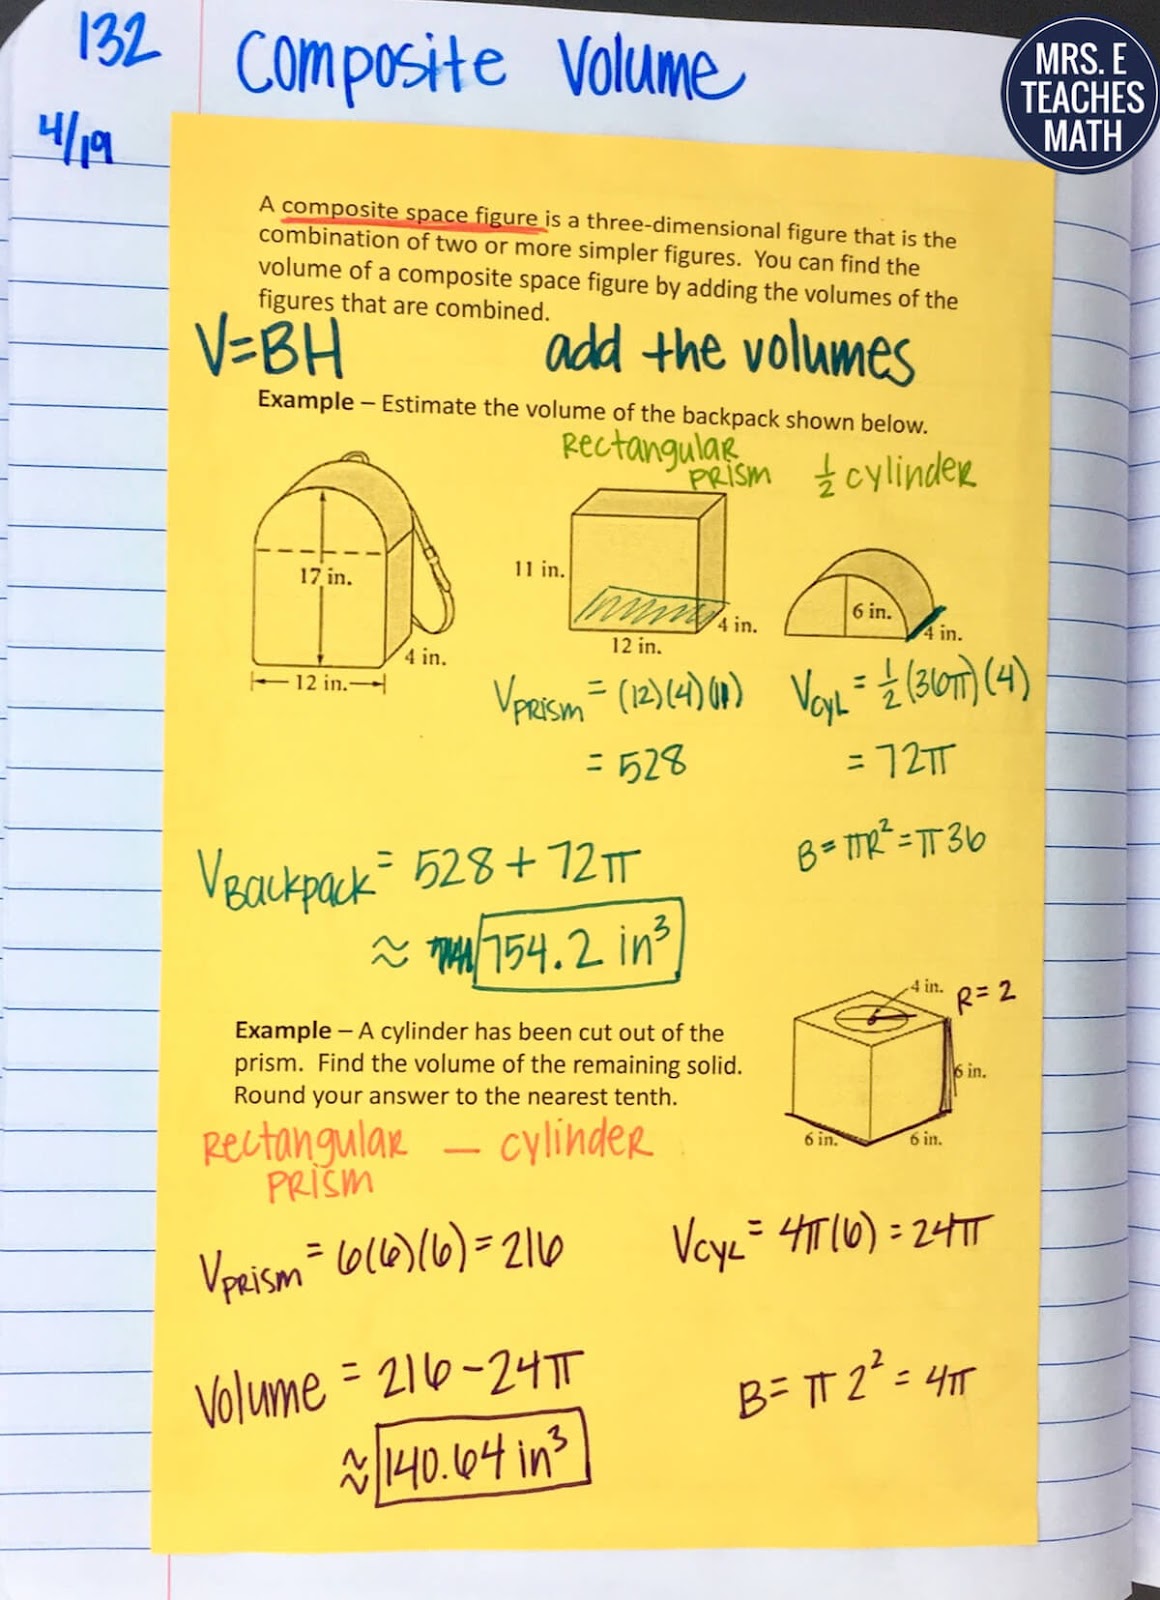 132
Composite Volume
MRS. E
TEACHES
MATH
4/19
A composite space figure is a three-dimensional figure that is the
combination of two or more simpler figures. You can find the
volume of a composite space figure by adding the volumes of the
figures that are combined.
V=BH add the volumes
Example – Estimate the volume of the backpack shown below.
Rectangular
Prism
1/2 cylinder
17 in.
4 in.
12 in.
11 in.
4 in.
12 in.
6 in.
4 in.
VPRISM = (12)(4)(11)
= 528
VCYL = 1/2 (36π)(4)
= 72π
B = πR² = π36
VBackpack = 528 + 72π
≈ 754.2 in³
Example – A cylinder has been cut out of the
prism. Find the volume of the remaining solid.
Round your answer to the nearest tenth.
4 in.
R=2
6 in.
6 in.
6 in.
Rectangular
Prism
— cylinder
VPRISM = 6(6)(6) = 216
VCYL = 4π(6) = 24π
Volume = 216 - 24π
≈ 140.64 in³
B = π 2² = 4π